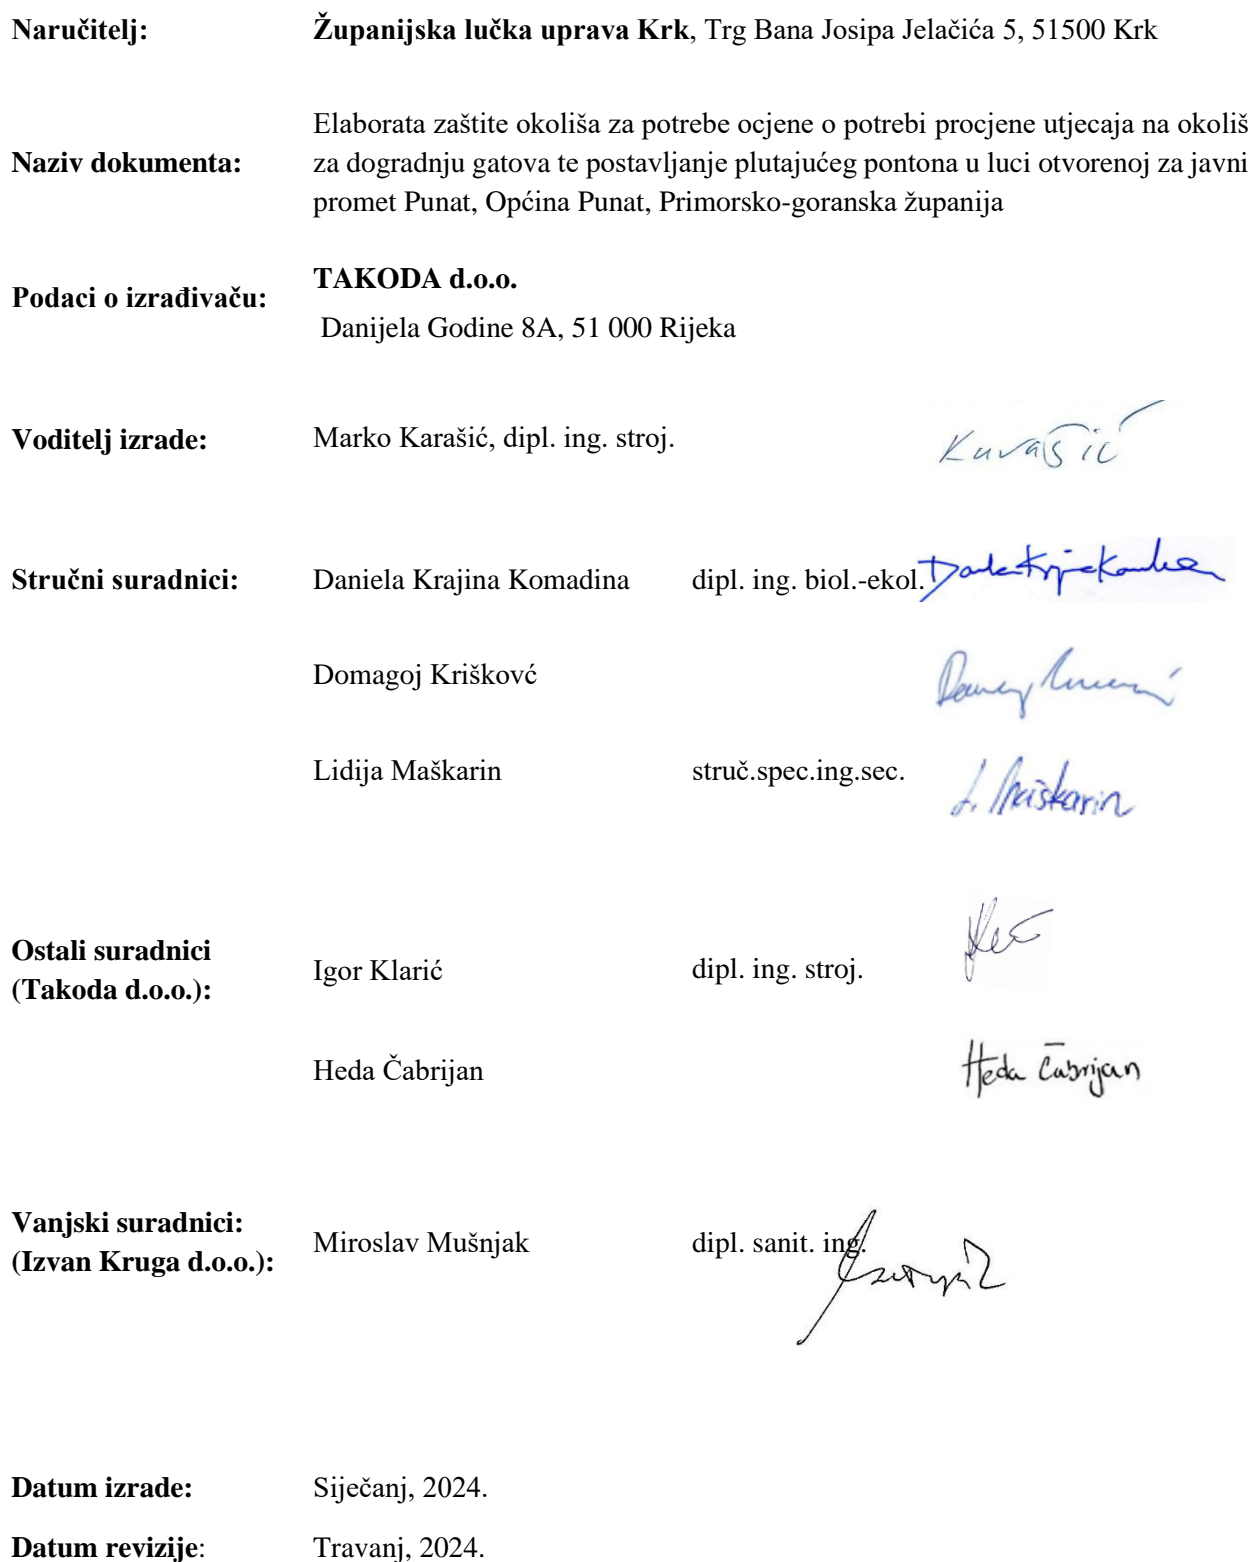 Naručitelj: Županijska lučka uprava Krk, Trg Bana Josipa Jelačića 5, 51500 Krk
Elaborata zaštite okoliša za potrebe ocjene o potrebi procjene utjecaja na okoliš
Naziv dokumenta: za dogradnju gatova te postavljanje plutajućeg pontona u luci otvorenoj za javni
promet Punat, Općina Punat, Primorsko-goranska županija
TAKODA d.o.o.
Podaci o izrađivaču:
Danijela Godine 8A, 51 000 Rijeka
Voditelj izrade: Marko Karašić, dipl. ing. stroj. Karašić
Stručni suradnici: Daniela Krajina Komadina dipl. ing. biol.-ekol.
Domagoj Kriškovć
Lidija Maškarin struč.spec.ing.sec. L. Maškarin
Ostali suradnici
(Takoda d.o.o.): Igor Klarić dipl. ing. stroj.
Heda Čabrijan Heda Čabrijan
Vanjski suradnici:
(Izvan Kruga d.o.o.): Miroslav Mušnjak dipl. sanit. ing.
Datum izrade: Siječanj, 2024.
Datum revizije: Travanj, 2024.